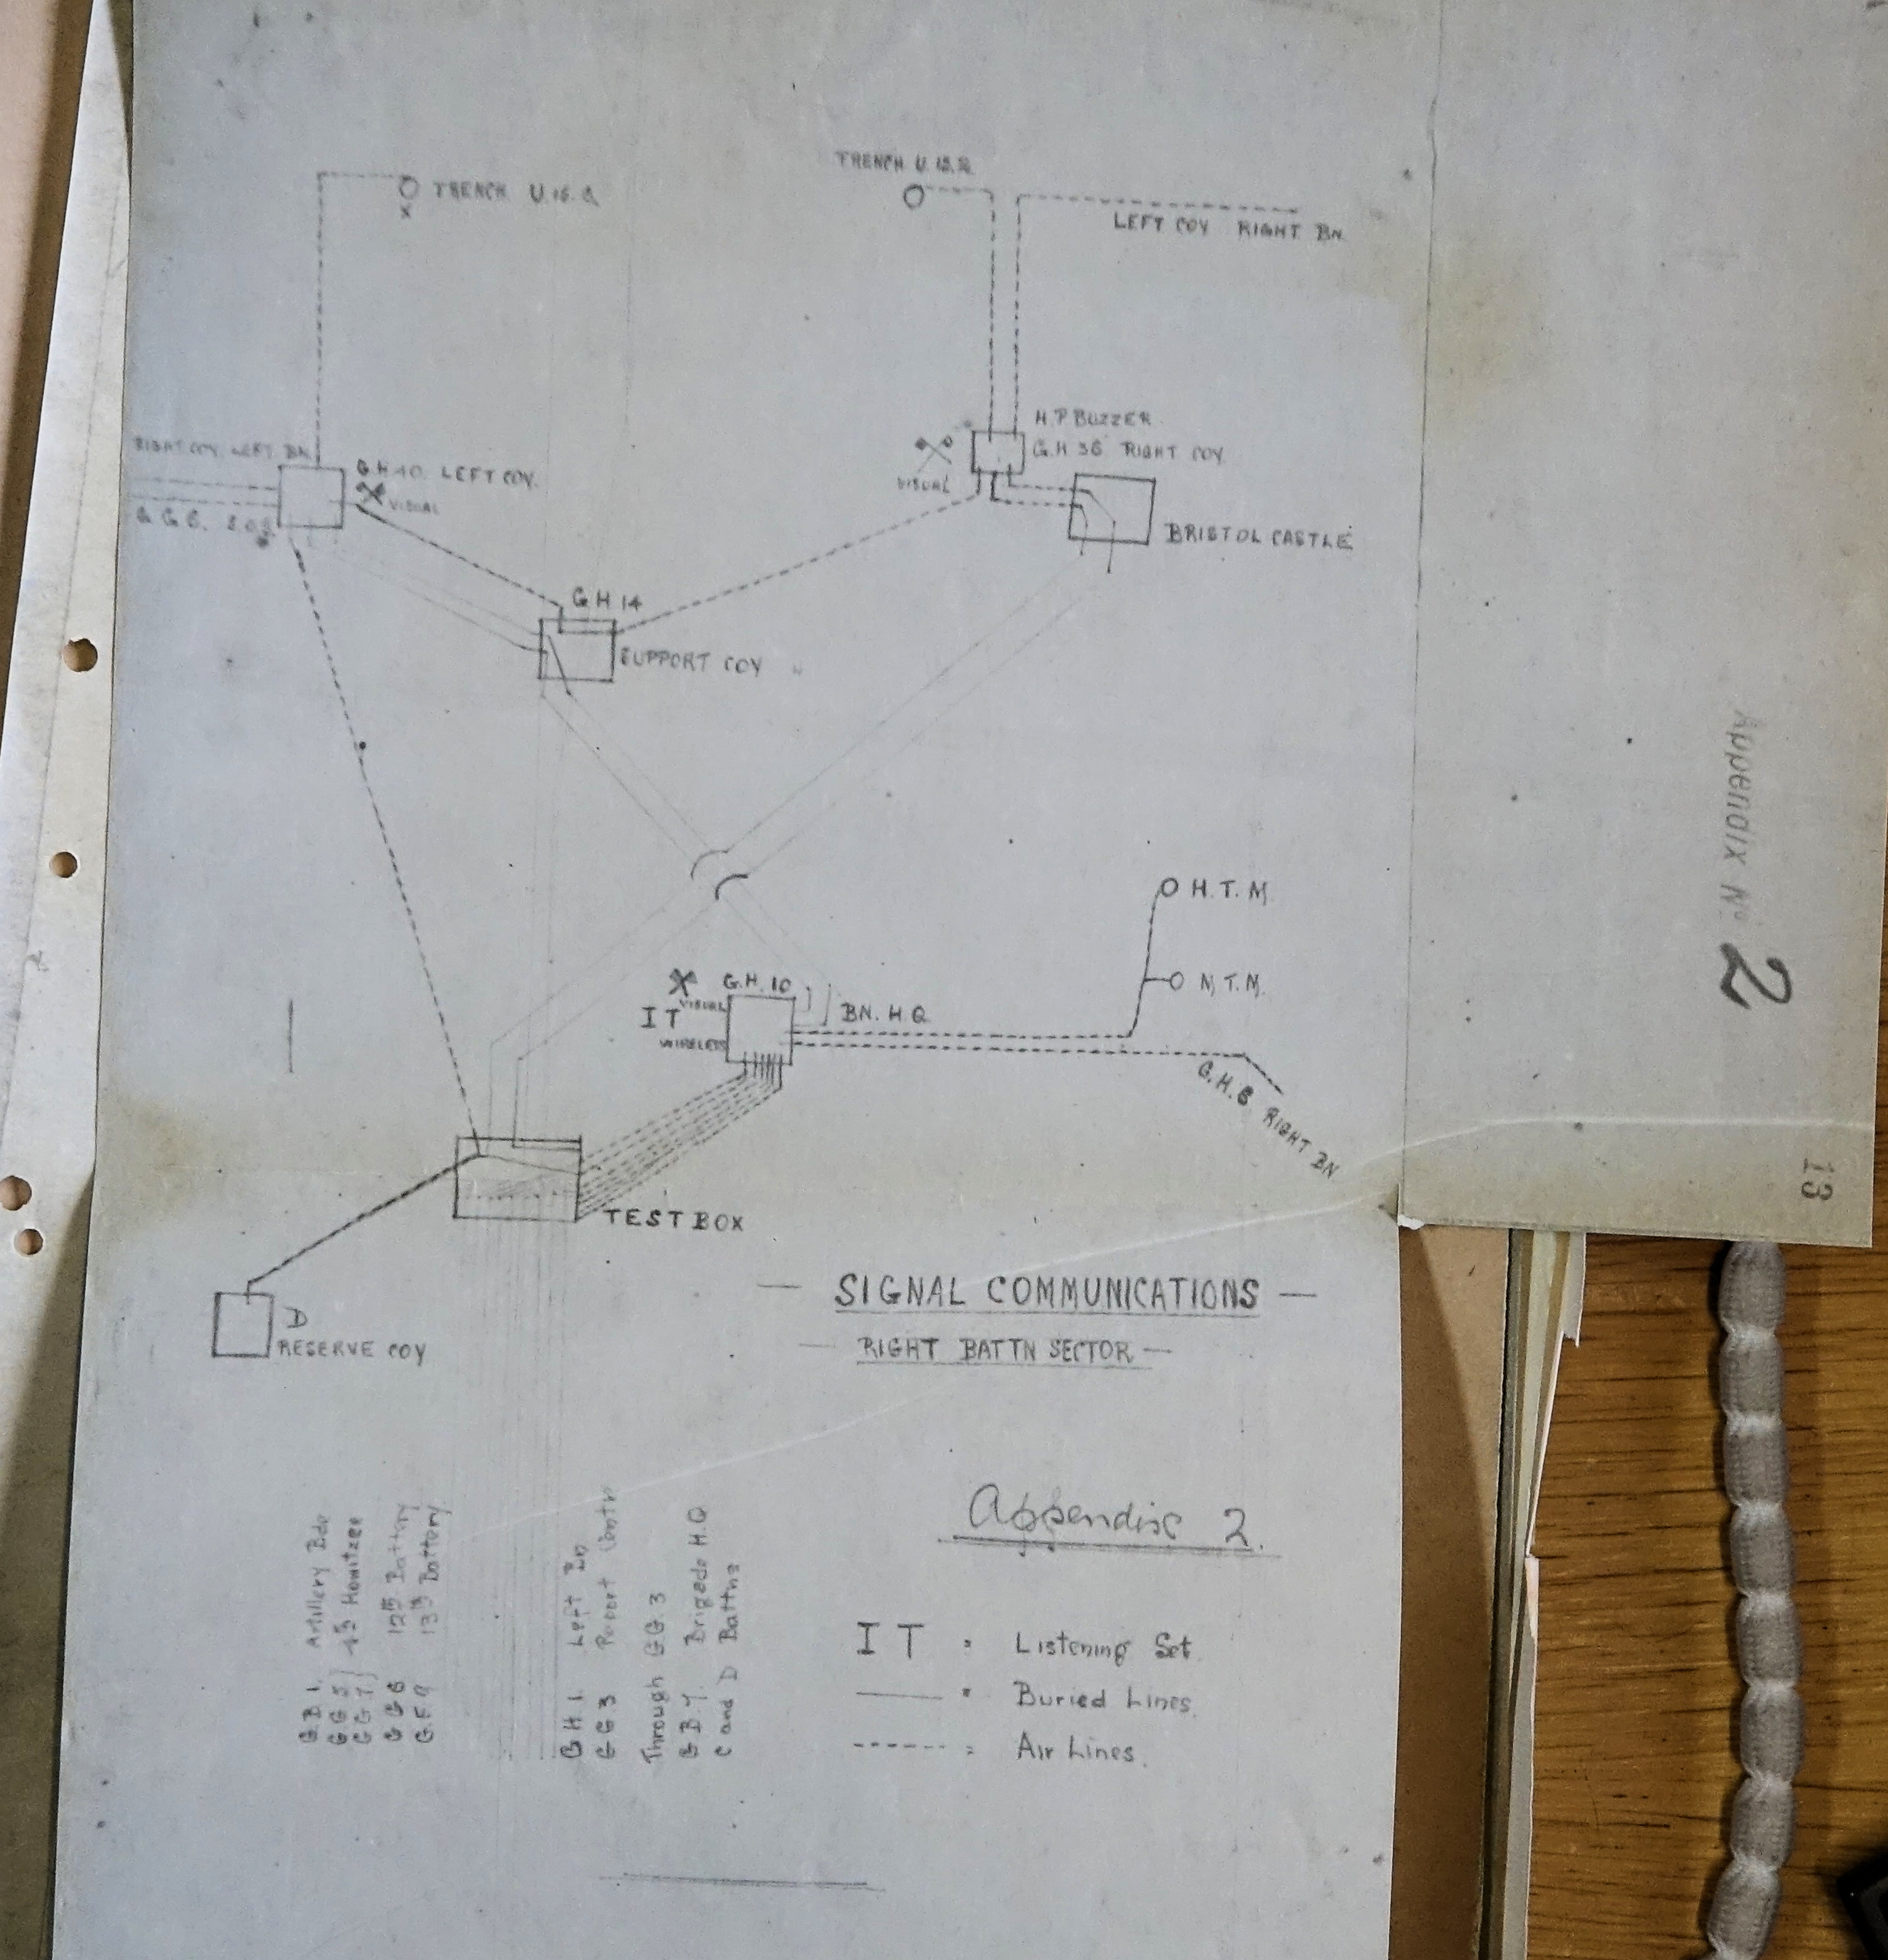 TRENCH U.
TRENCH U.
LEFT COY RIGHT BN.
H.P BUZZER
G.H 36 RIGHT COY.
VISUAL
RIGHT COY. LEFT BN.
G.H 40. LEFT COY.
VISUAL
BRISTOL CASTLE
G H 14
SUPPORT COY
Appendix No 2
O H.T.M.
O M.T.M.
G.H. 10
VISUAL
I T
WIRELESS
BN. H.Q.
G.H.8 RIGHT BN
13
TEST BOX
D
RESERVE COY
— SIGNAL COMMUNICATIONS —
— RIGHT BATTN SECTOR —
Appendix 2.
G.B 1. Artillery Bde
GG 5
GG 7 } 4.5 Howitzer
G G 6 12th Battery
G.F 9 13th Battery
G H 1. Left Bn
G G 3 Report Centre
Through GG.3
G B Y. Brigade H.Q
C and D Battns
I T = Listening Set
= Buried Lines.
------ = Air Lines.